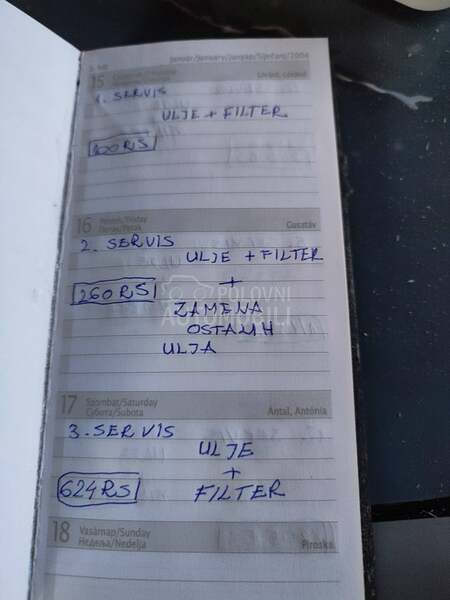 3. hét Január/January/Јануар/Siječanj/2004
15 Lóránt, Loránd
1. SERVIS
ULJE + FILTER
100 RS
16 Péntek/Friday Gusztáv
Петак/Petak
2. SERVIS
ULJE + FILTER
260 RS +
ZAMENA
OSTALIH
ULJA
POLOVNI
AUTOMOBILI
17 Szombat/Saturday Antal, Antónia
Субота/Subota
3. SERVIS
ULJE
+
624 RS FILTER
18 Vasárnap/Sunday Piroska
Недеља/Nedelja